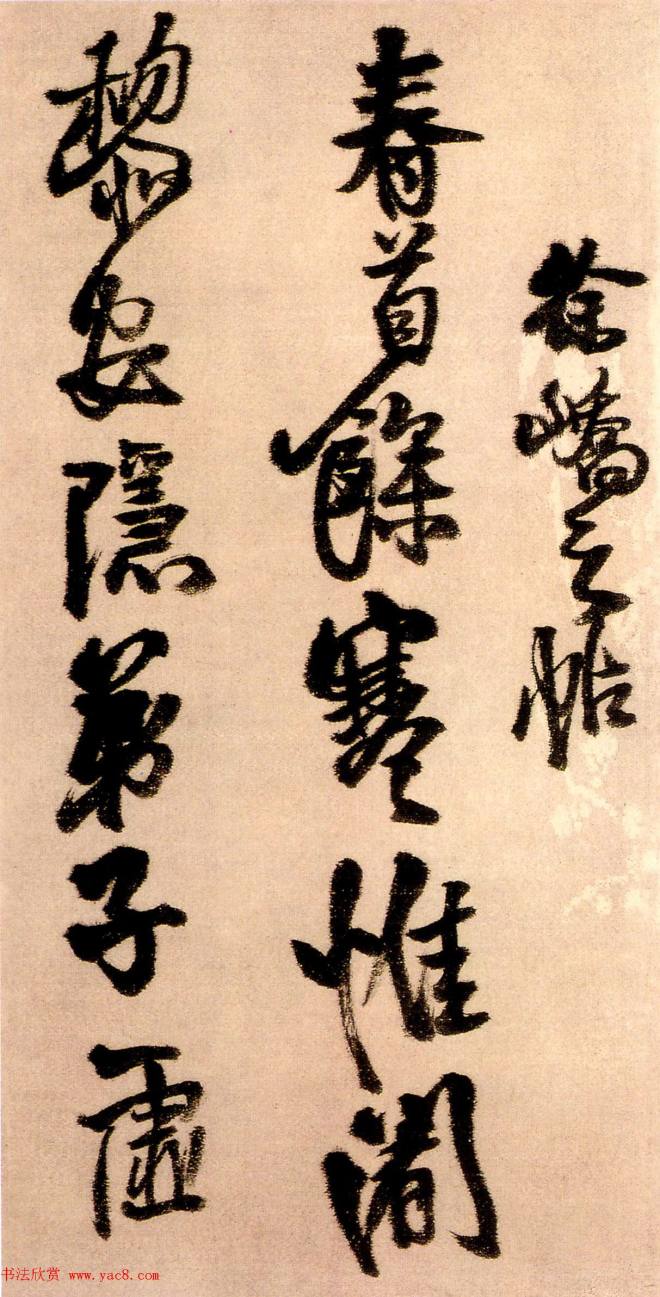 徐嶠之帖
春首餘寒惟闍
黎安隱弟子虛
书法欣赏 www.yac8.com